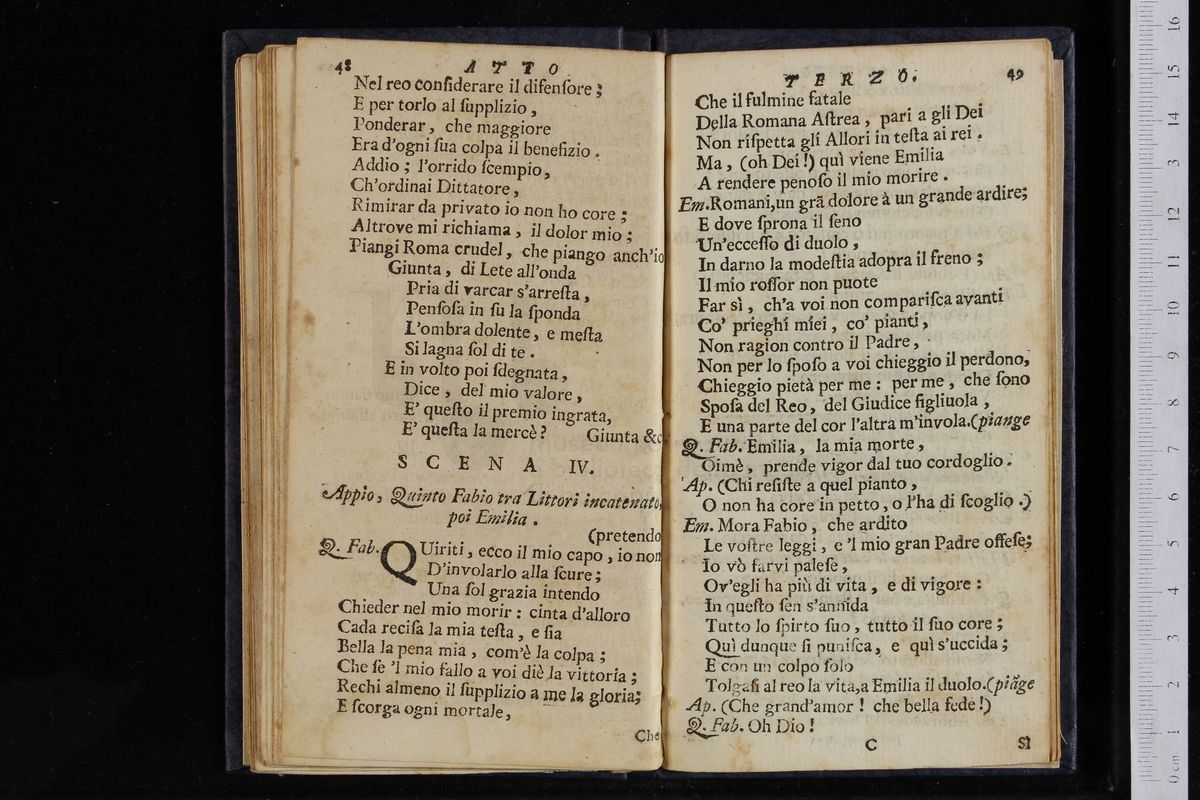 48 ATTO
Nel reo conſiderare il difenſore;
E per torlo al ſupplizio,
Ponderar, che maggiore
Era d'ogni ſua colpa il benefizio.
Addio; l'orrido ſcempio,
Ch'ordinai Dittatore,
Rimirar da privato io non ho core;
Altrove mi richiama, il dolor mio;
Piangi Roma crudel, che piango anch'io
Giunta, di Lete all'onda
Pria di varcar s'arreſta,
Penſoſa in ſu la ſponda
L'ombra dolente, e meſta
Si lagna ſol di te.
E in volto poi ſdegnata,
Dice, del mio valore,
E' queſto il premio ingrata,
E' queſta la mercè? Giunta &c
SCENA IV.
Appio, Quinto Fabio tra Littori incatenato,
poi Emilia.
(pretendo
Q. Fab. QUiriti, ecco il mio capo, io non
D'involarlo alla ſcure;
Una ſol grazia intendo
Chieder nel mio morir: cinta d'alloro
Cada reciſa la mia teſta, e ſia
Bella la pena mia, com'è la colpa;
Che ſe 'l mio fallo a voi diè la vittoria;
Rechi almeno il ſupplizio a me la gloria;
E ſcorga ogni mortale,
Che
TERZO. 49
Che il fulmine fatale
Della Romana Aſtrea, pari a gli Dei
Non riſpetta gli Allori in teſta ai rei.
Ma, (oh Dei!) quì viene Emilia
A rendere penoſo il mio morire.
Em. Romani, un grã dolore à un grande ardire;
E dove ſprona il ſeno
Un'ecceſſo di duolo,
In darno la modeſtia adopra il freno;
Il mio roſſor non puote
Far sì, ch'a voi non compariſca avanti
Co' prieghi miei, co' pianti,
Non ragion contro il Padre,
Non per lo ſpoſo a voi chieggio il perdono,
Chieggio pietà per me: per me, che ſono
Spoſa del Reo, del Giudice figliuola,
E una parte del cor l'altra m'invola. (piange
Q. Fab. Emilia, la mia morte,
Oimè, prende vigor dal tuo cordoglio.
Ap. (Chi reſiſte a quel pianto,
O non ha core in petto, o l'ha di ſcoglio.)
Em. Mora Fabio, che ardito
Le voſtre leggi, e 'l mio gran Padre offeſe;
Io vò farvi paleſe,
Ov'egli ha più di vita, e di vigore:
In queſto ſen s'annida
Tutto lo ſpirto ſuo, tutto il ſuo core;
Quì dunque ſi puniſca, e quì s'uccida;
E con un colpo ſolo
Tolgaſi al reo la vita, a Emilia il duolo. (piãge
Ap. (Che grand'amor! che bella fede!)
Q. Fab. Oh Dio!
C Sì